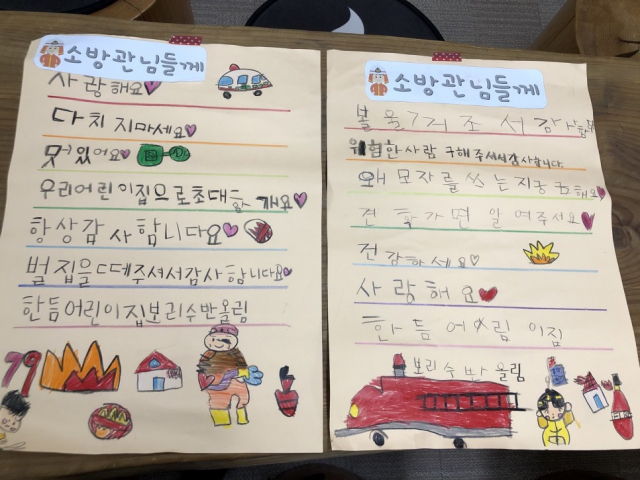 소방관님들께
사랑해요
다치지마세요
멋있어요
우리어린이집으로초대할개요
항상감사합니다요
벌집을ㄷ데주셔서감사합니다요
한듬어린이집보리수반올림
119
소방관님들께
불을 7거조서감사
위험한사람 구해주셔서감사합니다
왜 모자를 쓰는지궁금해요
견학가면 일여주서요
건강하세요
사랑해요
한듬어린이집
보리수반올림